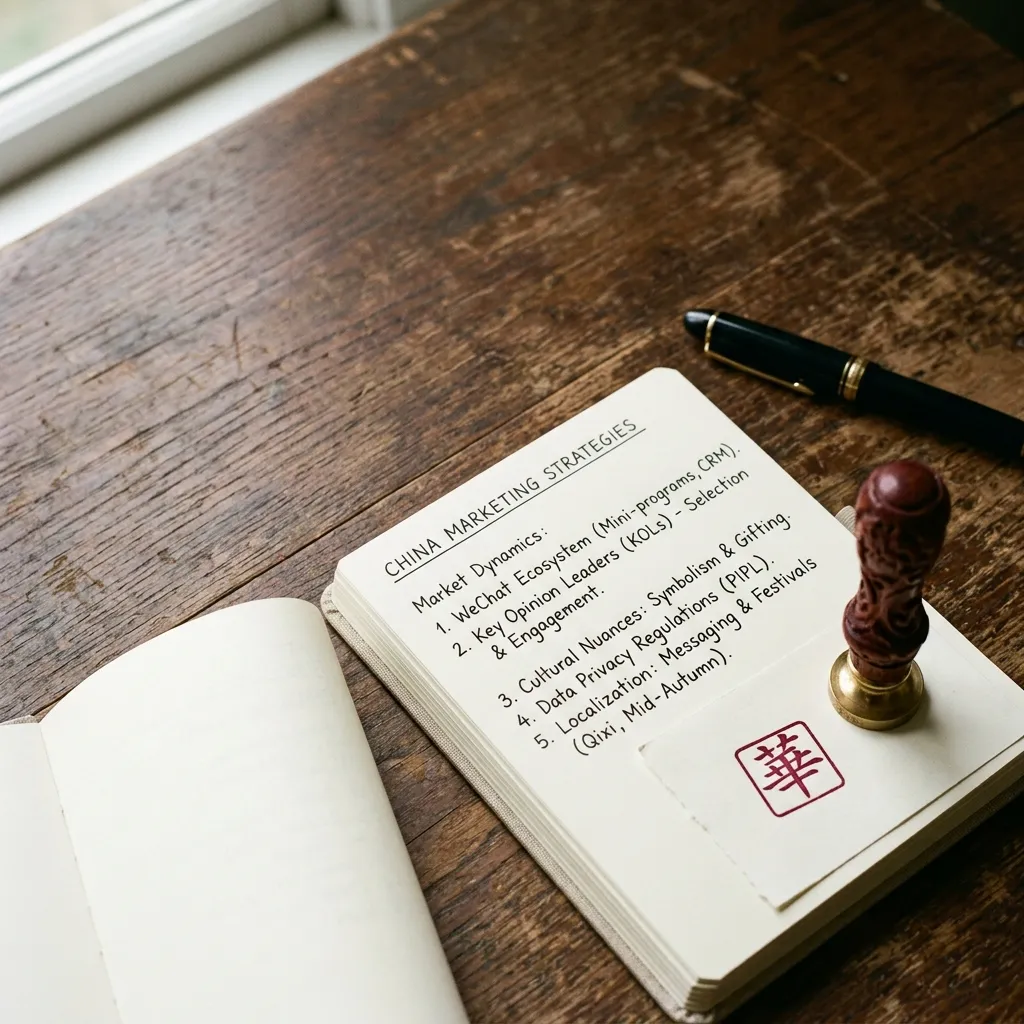 CHINA MARKETING STRATEGIES
Market Dynamics:
1. WeChat Ecosystem (Mini-programs, CRM).
2. Key Opinion Leaders (KOLs) - Selection
& Engagement.
3. Cultural Nuances: Symbolism & Gifting.
4. Data Privacy Regulations (PIPL).
5. Localization: Messaging & Festivals
(Qixi, Mid-Autumn).
華